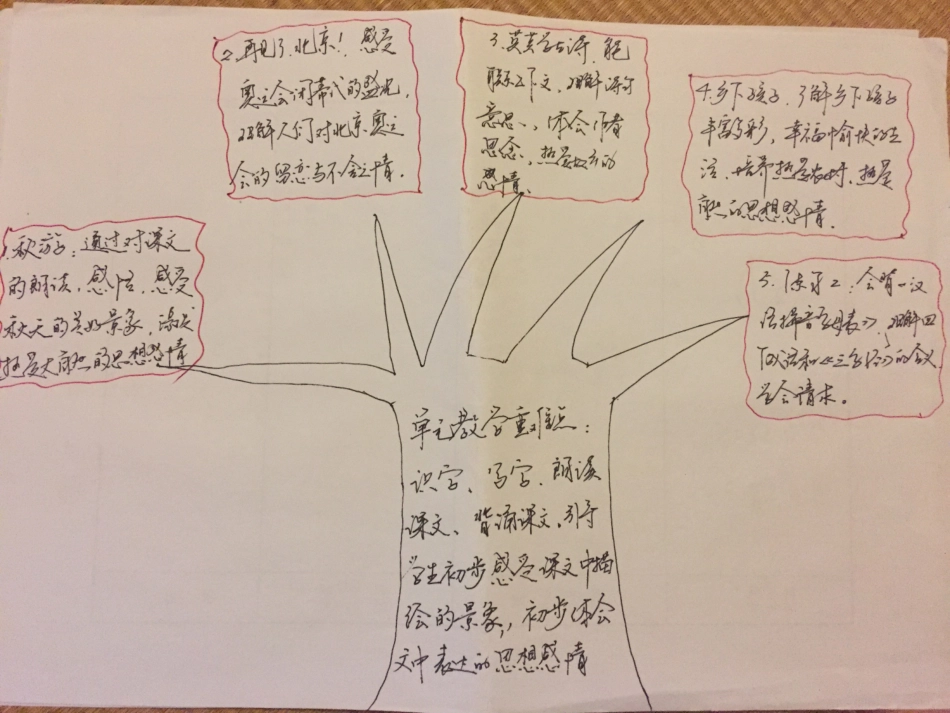 1.秋游:通过对课文
的朗读,感悟,感受
秋天的美好景象,激发
热爱大自然的思想感情
2.再见了,北京!感受
奥运会闭幕式的盛况,
理解人们对北京奥运
会的留恋与不舍之情.
3.英英学古诗,能
联系上下文,理解诗句
意思,体会作者
思念、热爱故乡的
感情、
4.乡下孩子,了解乡下孩子
丰富多彩,幸福愉快的生
活,培养热爱农村,热爱
自然的思想感情.
5.练习2:会背《汉
语拼音字母表》,理解四
个成语和《三字经》的含义
学会请求。
单元教学重难点:
识字、写字、朗读
课文、背诵课文,引导
学生初步感受课文中描
绘的景象,初步体会
文中表达的思想感情